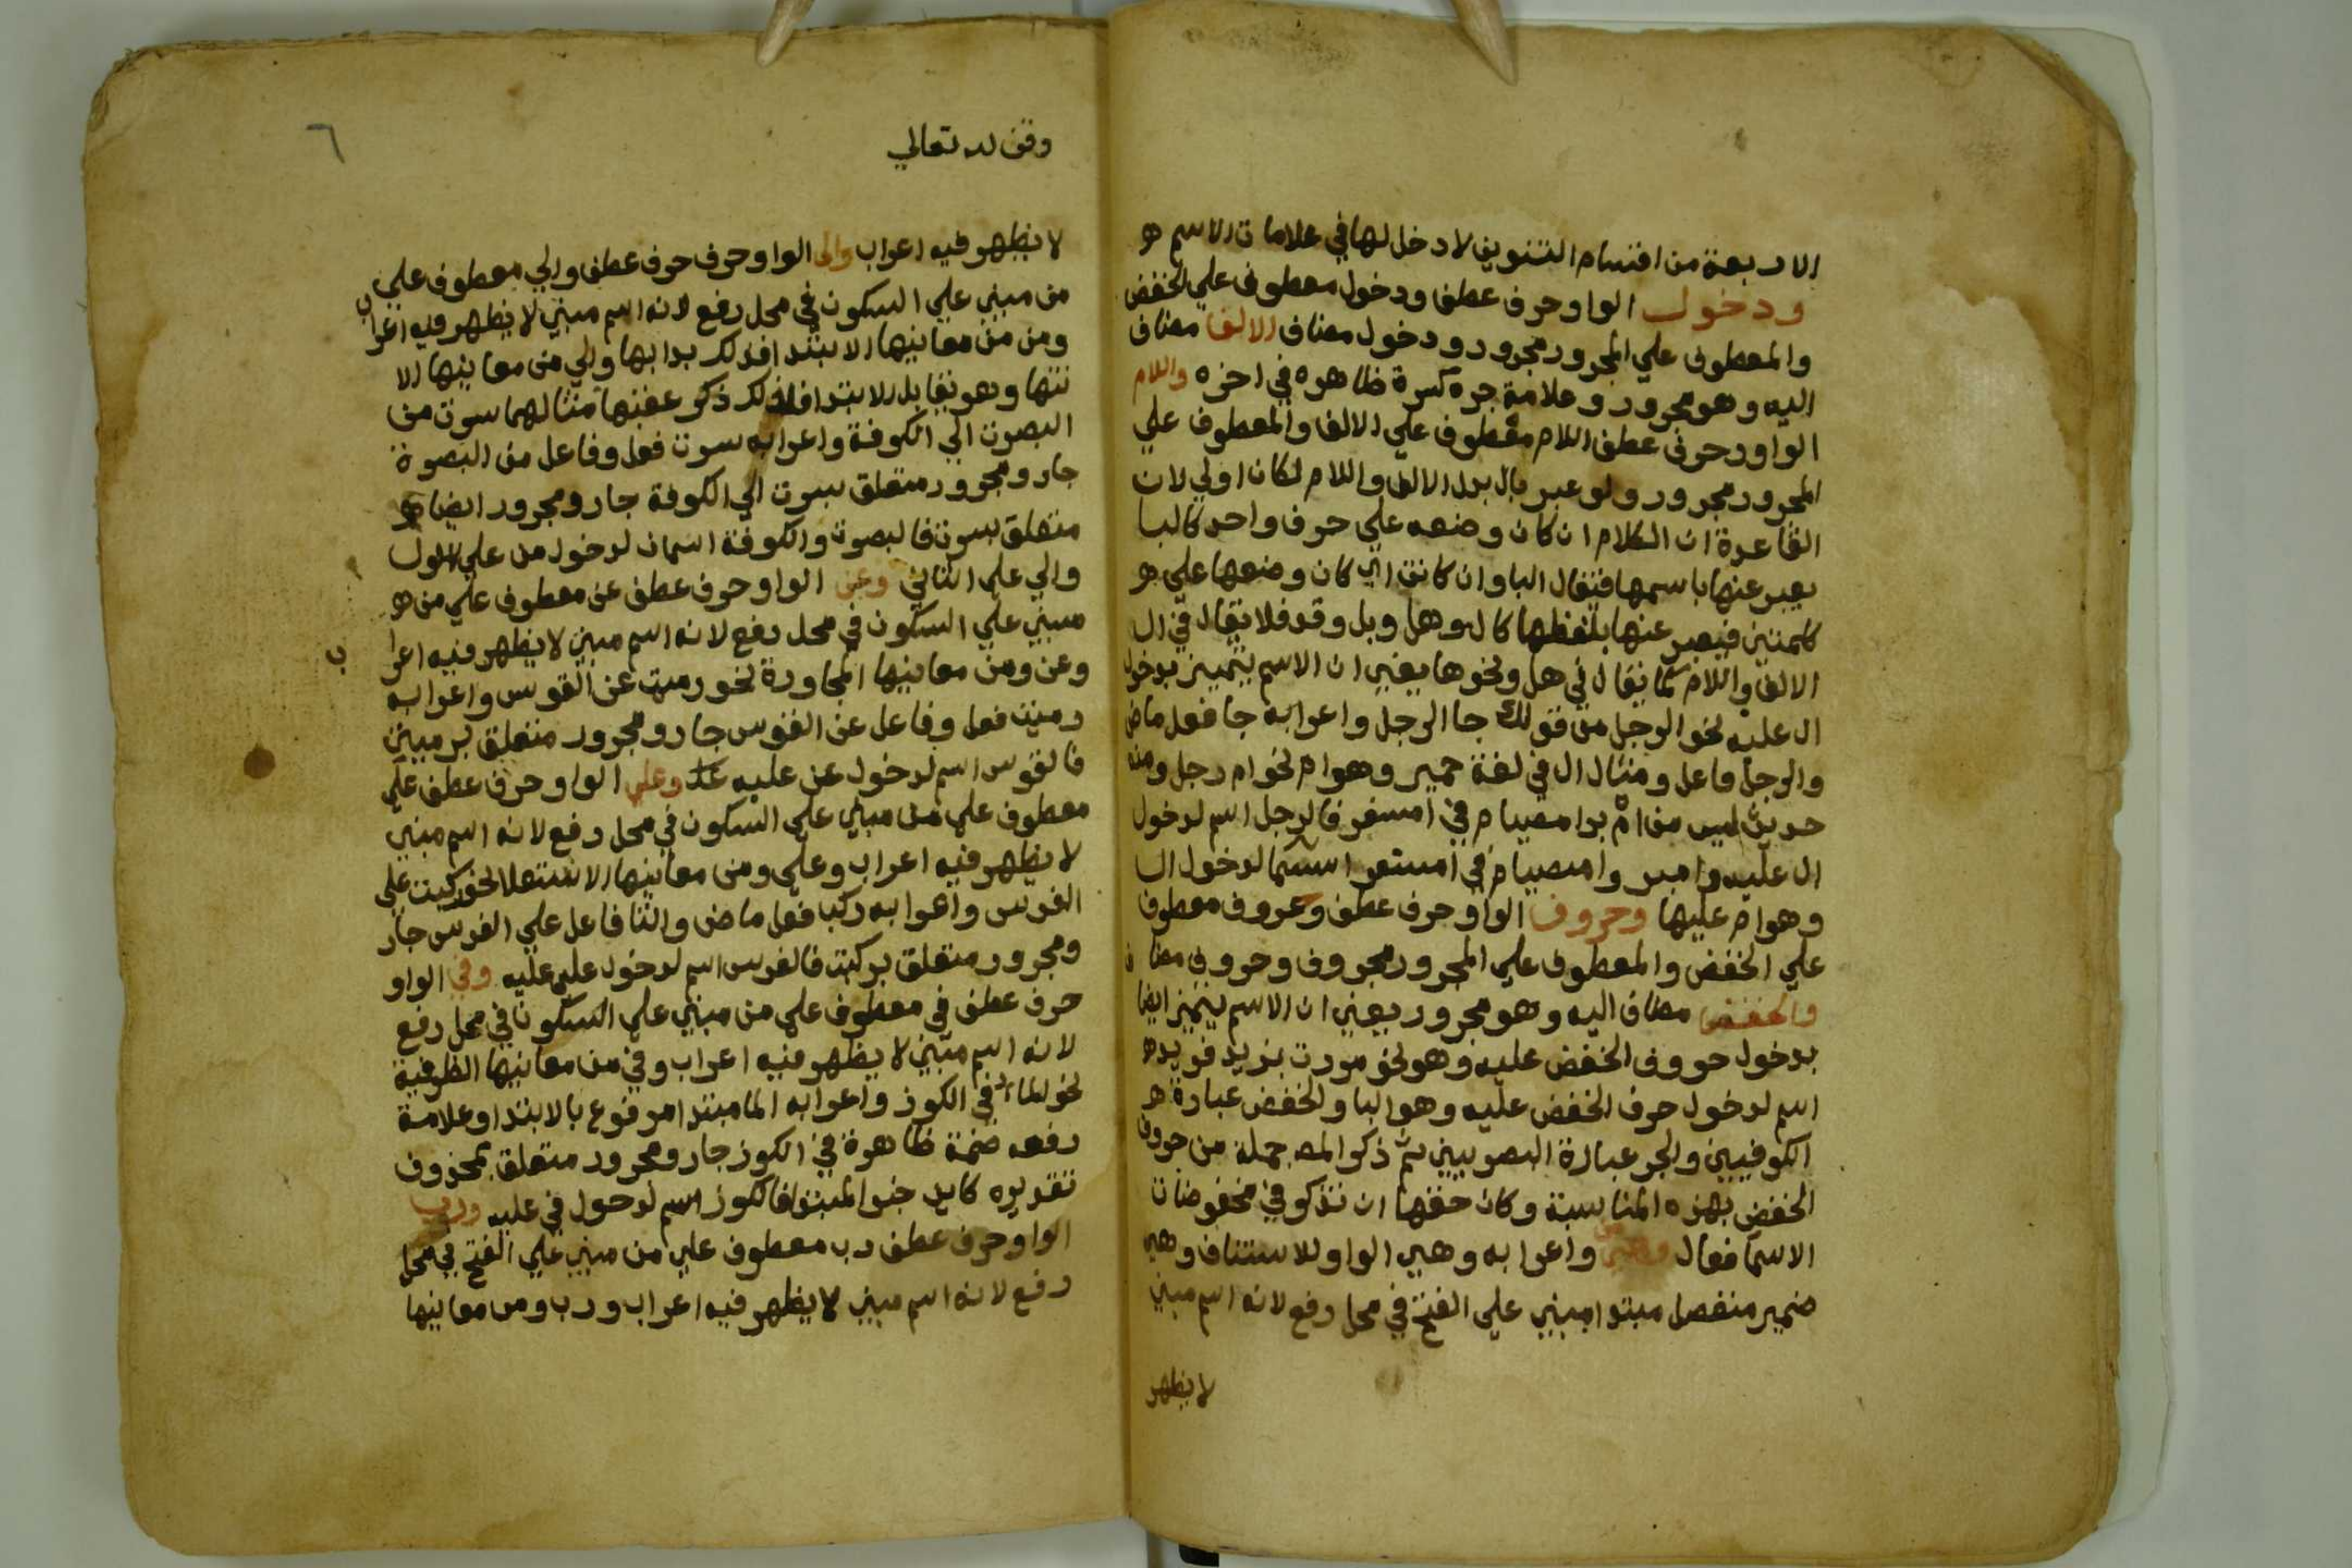 الاربعة من اقسام التنوين لا دخل لها في علامات الاسم هو
ودخول الواو حرف عطف ودخول معطوف علي الخفض
والمعطوف علي المجرور مجرور ودخول مضاف الالف مضاف
اليه وهو مجرور وعلامة جره كسرة ظاهره في اخره واللام
الواو حرف عطف اللام معطوف علي الالف والمعطوف علي
المجرور مجرور ولو عبر بال بدل الالف واللام لكان اولي لان
القاعدة ان الكلام ان كان وضعه علي حرف واحد كالبا
يعبر عنها باسمها فتقال البا وان كانت اي كان وضعها علي هو
كلمتين فيعبر عنها بلفظها كال وهل وبل وقد فلا يقال في ال
الالف واللام كما يقال في هل ونحوها يعني ان الاسم يتميز بدخول
ال عليه نحو الرجل من قولك جا الرجل واعرابه جا فعل ماض
والرجل فاعل ومثال ال في لغة حمير وهو ام نحو ام رجل ومنه
حديث ليس من ام برامصيام في امسفر فالرجل اسم لدخول
ال عليه وامبر وامصيام في امسفر اسما لدخول ال
وهو ام عليها وحروف الواو حرف عطف وحروف معطوف
علي الخفض والمعطوف علي المجرور مجروف وحروف مضاف
والخفض مضاف اليه وهو مجرور يعني ان الاسم يتميز ايضا
بدخول حروف الخفض عليه وهو نحو مررت بزيد فزيد هو
اسم لدخول حرف الخفض عليه وهو البا والخفض عبارة هو
الكوفيين والجر عبارة البصريين ثم ذكر المصر جملة من حروف
الخفض بهذه المناسبة وكان حقها ان تذكر في مخفوضات
الاسما فقال وهي من واعرابه وهي الواو للاستئناف وهي
ضمير منفصل مبتدا مبني علي الفتح في محل رفع لانه اسم مبني
لا يظهر
وقف لله تعالي
٦
لا يظهر فيه اعراب والى الواو حرف حرف عطف والي معطوف علي
من مبني علي السكون في محل رفع لانه اسم مبني لا يظهر فيه اعراب
ومن من معانيها الابتدا فلذلك بدا بها والي من معانيها الا
نتها وهو يقابل الابتدا فلذلك ذكر عقبها مثالهما سرت من
البصرت الي الكوفة واعرابه سرت فعل وفاعل من البصرة
جار ومجرور متعلق بسرت الي الكوفة جار ومجرور ايضا هو
متعلق بسرت فالبصرت والكوفة اسمان لدخول من علي الاول
والي علي الثاني وعن الواو حرف عطف عن معطوف علي من هو
مبني علي السكون في محل رفع لانه اسم مبني لا يظهر فيه اعراب
وعن ومن معانيها المجاورة نحو رميت عن القوس واعرابه
رميت فعل وفاعل عن القوس جار ومجرور متعلق برميت
فالقوس اسم لدخول عن عليه وعلي الواو حرف عطف علي
معطوف علي من مبني علي السكون في محل رفع لانه اسم مبني
لا يظهر فيه اعراب وعلي ومن معانيها الاستعلا نحو ركبت علي
الفرس واعرابه ركب فعل ماض والتا فاعل علي الفرس جار
ومجرور متعلق بركبت فالفرس اسم لدخول علي عليه وفي الواو
حرف عطف في معطوف علي من مبني علي السكون في محل رفع
لانه اسم مبني لا يظهر فيه اعراب وفي من معانيها الظرفية
نحو الما في الكوز واعرابه الما مبتدا مرفوع بالابتدا وعلامة
رفعه ضمة ظاهرة في الكوز جار ومجرور متعلق بمحزوف
تقديره كاين خبر المبتدا فالكوز اسم لدخول في عليه ورب
الواو حرف عطف رب معطوف علي من مبني علي الفتح في محل
رفع لانه اسم مبني لا يظهر فيه اعراب ورب ومن معانيها